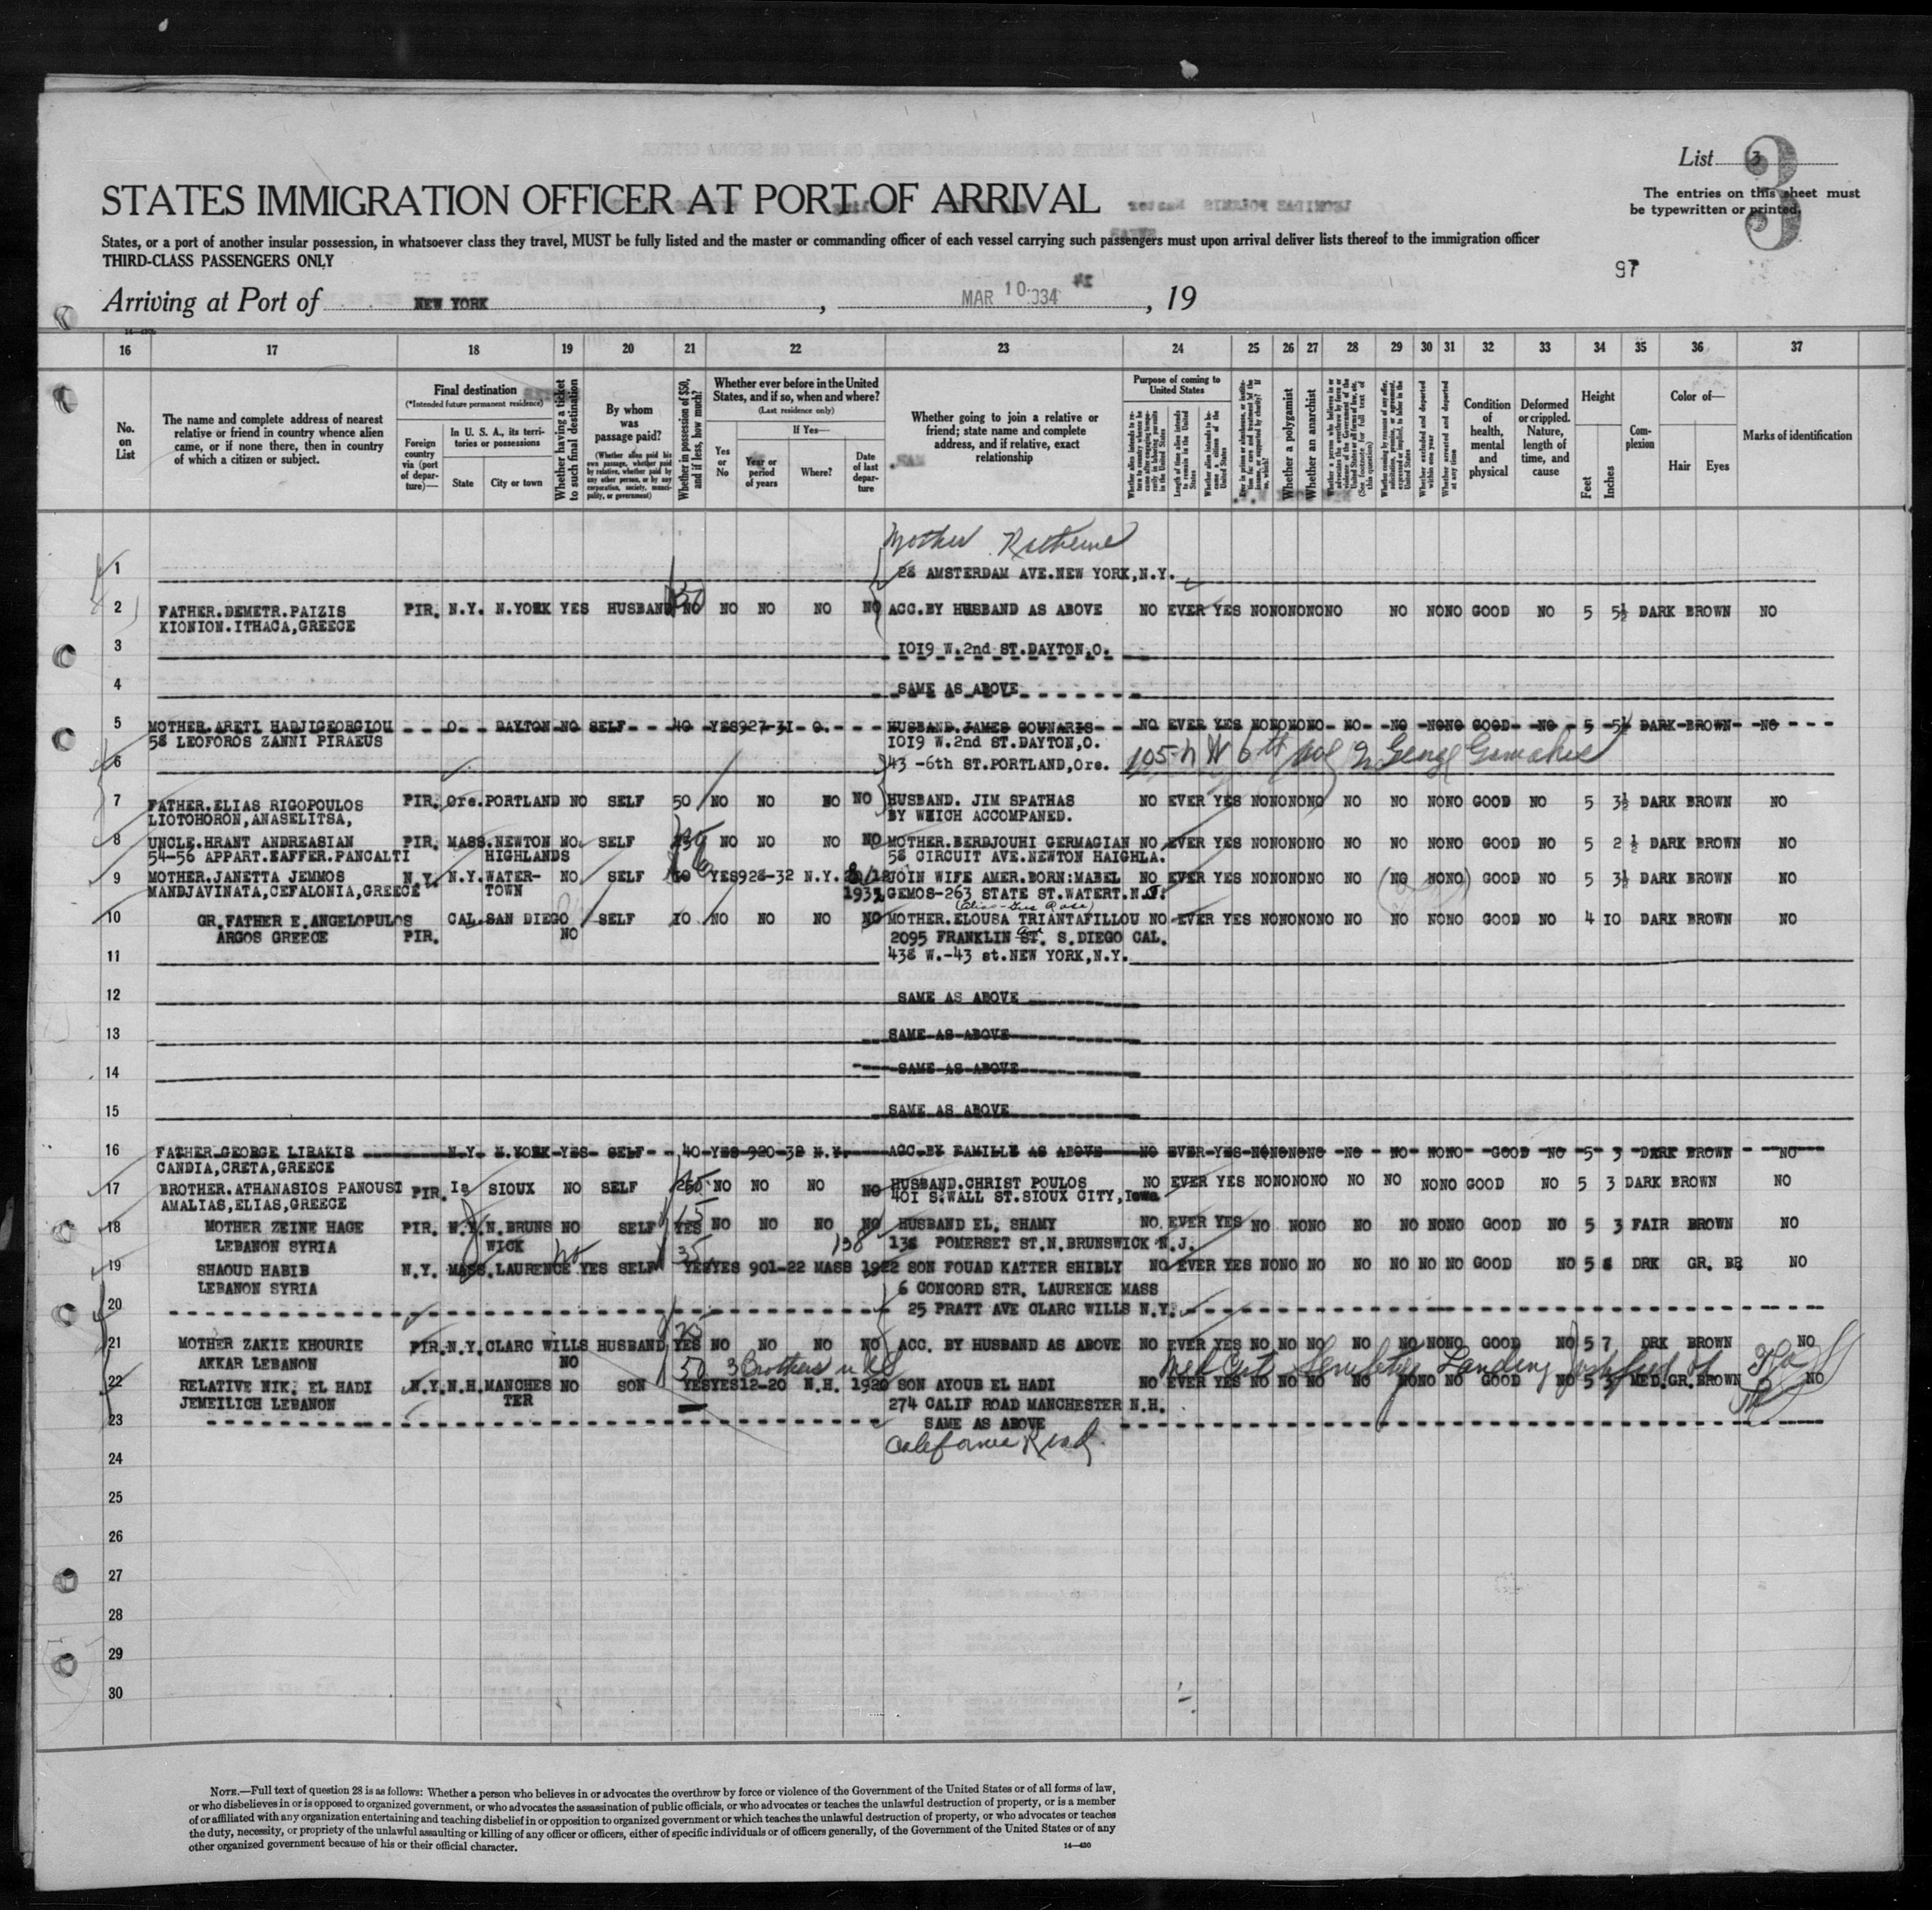 List 3
3
The entries on this sheet must
be typewritten or printed.
STATES IMMIGRATION OFFICER AT PORT OF ARRIVAL
States, or a port of another insular possession, in whatsoever class they travel, MUST be fully listed and the master or commanding officer of each vessel carrying such passengers must upon arrival deliver lists thereof to the immigration officer
THIRD-CLASS PASSENGERS ONLY
97
Arriving at Port of NEW YORK, MAR 10 034, 19
16 17 18 19 20 21 22 23 24 25 26 27 28 29 30 31 32 33 34 35 36 37
No. on List
The name and complete address of nearest relative or friend in country whence alien came, or if none there, then in country of which a citizen or subject.
Final destination
(*Intended future permanent residence)
Foreign country via (port of departure)—
In U. S. A., its territories or possessions
State
City or town
Whether having a ticket to such final destination
By whom was passage paid?
(Whether alien paid his own passage, whether paid by relative, whether paid by any other person, or by any corporation, society, municipality, or government)
Whether in possession of $50, and if less, how much?
Whether ever before in the United States, and if so, when and where?
(Last residence only)
Yes or No
If Yes—
Year or period of years
Where?
Date of last departure
Whether going to join a relative or friend; state name and complete address, and if relative, exact relationship
Purpose of coming to United States
Length of time alien intends to remain in the United States
Whether alien intends to become a citizen of the United States
Whether a polygamist
Whether an anarchist
Whether excluded and deported within one year
Whether arrested and deported at any time
Condition of health, mental and physical
Deformed or crippled. Nature, length of time, and cause
Height
Feet
Inches
Complexion
Color of—
Hair
Eyes
Marks of identification
Mother Katherine
1 28 AMSTERDAM AVE.NEW YORK,N.Y.
2 FATHER.DEMETR.PAIZIS PIR. N.Y. N.YORK YES HUSBAND NO 50 NO NO NO NO ACC.BY HUSBAND AS ABOVE NO EVER YES NONONONONO NO NONO GOOD NO 5 5½ DARK BROWN NO
KIONION.ITHACA,GREECE
3 1019 W.2nd ST.DAYTON,O.
4 SAME AS ABOVE
5 MOTHER.ARETI HADJIGEORGIOU O. DAYTON NO SELF 40 YES927-31 O. HUSBAND.JAMES GOUNARIS NO EVER YES NONONONO NO NO NONO GOOD NO 5 5½ DARK BROWN NO
58 LEOFOROS ZANNI PIRAEUS 1019 W.2nd ST.DAYTON,O.
6 43 -6th ST.PORTLAND,Ore. 105-N W 6th
7 FATHER.ELIAS RIGOPOULOS PIR. Ore.PORTLAND NO SELF 50 NO NO NO NO HUSBAND. JIM SPATHAS NO EVER YES NONONONO NO NO NONO GOOD NO 5 3½ DARK BROWN NO
LIOTOHORON,ANASELITSA, BY WHICH ACCOMPANED.
8 UNCLE.HRANT ANDREASIAN PIR. MASS.NEWTON NO. SELF NO NO NO NO MOTHER.BERDJOUHI GERMAGIAN NO EVER YES NONONONO NO NO NONO GOOD NO 5 2 ½ DARK BROWN NO
54-56 APPART.EAFFER.PANCALTI HIGHLANDS 58 CIRCUIT AVE.NEWTON HAIGHLA.
9 MOTHER.JANETTA JEMMOS N.Y. N.Y.WATER- NO. SELF YES928-32 N.Y. JOIN WIFE AMER.BORN:MABEL NO EVER YES NONONONO NO NO NONO GOOD NO 5 3½ DARK BROWN NO
MANDJAVINATA,CEFALONIA,GREECE TOWN 1932 GEMOS-263 STATE ST.WATERT.N.
10 GR.FATHER E.ANGELOPULOS CAL.SAN DIEGO SELF 10 NO NO NO NO MOTHER.ELOUSA TRIANTAFILLOU NO EVER YES NONONONO NO NO NONO GOOD NO 4 10 DARK BROWN NO
ARGOS GREECE PIR. NO 2095 FRANKLIN ST. Ave S.DIEGO CAL.
11 438 W.-43 st.NEW YORK,N.Y.
12 SAME AS ABOVE
13 SAME AS ABOVE
14 SAME AS ABOVE
15 SAME AS ABOVE
16 FATHER.GEORGE LIRAKIS N.Y. N.YORK YES SELF 40 YES 920-32 N.Y. ACC.BY FAMILLE AS ABOVE NO EVER YES NONONONO NO NO NONO GOOD NO 5 3 DARK BROWN NO
CANDIA,CRETA,GREECE
17 BROTHER.ATHANASIOS PANOUSI PIR. Ia SIOUX NO SELF NO NO NO NO HUSBAND.CHRIST POULOS NO EVER YES NONONONO NO NO NONO GOOD NO 5 3 DARK BROWN NO
AMALIAS,ELIAS,GREECE 401 S.WALL ST.SIOUX CITY,Iowa
18 MOTHER ZEINE HAGE PIR. N.Y. N. BRUNS NO SELF YES 15 NO NO NO NO HUSBAND EL. SHAMY NO EVER YES NO NONO NO NO NONO GOOD NO 5 3 FAIR BROWN NO
LEBANON SYRIA WICK 138 138 POMERSET ST.N.BRUNSWICK N.J.
19 SHAOUD HABIB N.Y. MASS.LAURENCE no YES SELF 35 YESYES 901-22 MASS 1922 SON FOUAD KATTER SHIBLY NO EVER YES NONO NO NO NO NO NO GOOD NO 5 8 DRK GR. BR NO
LEBANON SYRIA 6 CONCORD STR. LAURENCE MASS
20 25 PRATT AVE CLARC WILLS N.Y.
21 MOTHER ZAKIE KHOURIE PIR.N.Y.CLARC WILLS HUSBAND YES NO NO NO NO ACC. BY HUSBAND AS ABOVE NO EVER YES NO NO NO NO NO NONO GOOD NO 5 7 DRK BROWN NO
AKKAR LEBANON NO 50 3 Brothers in US Med Cert Senility Landing
22 RELATIVE NIK. EL HADI N.Y.N.H.MANCHES NO SON YESYES12-20 N.H. 1920 SON AYOUB EL HADI NO EVER YES NO NO NO NO NONO NO GOOD NO 5 3 MED.GR.BROWN NO
JEMEILICH LEBANON TER 274 CALIF ROAD MANCHESTER N.H.
23 SAME AS ABOVE
California Road
24
25
26
27
28
29
30
NOTE.—Full text of question 28 is as follows: Whether a person who believes in or advocates the overthrow by force or violence of the Government of the United States or of all forms of law,
or who disbelieves in or is opposed to organized government, or who advocates the assassination of public officials, or who advocates or teaches the unlawful destruction of property, or is a member
of or affiliated with any organization entertaining and teaching disbelief in or opposition to organized government or which teaches the unlawful destruction of property, or who advocates or teaches
the duty, necessity, or propriety of the unlawful assaulting or killing of any officer or officers, either of specific individuals or of officers generally, of the Government of the United States or of any
other organized government because of his or their official character.
14—430